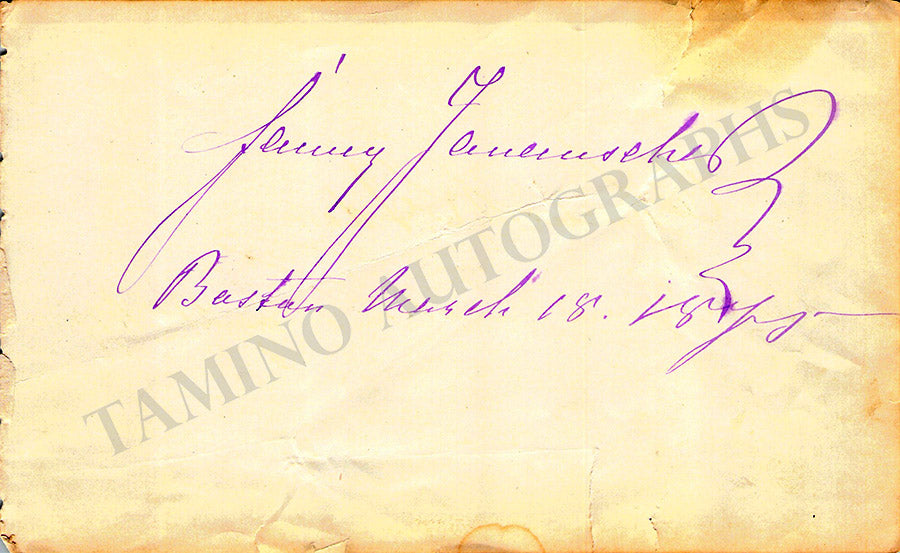 Fanny Janauschek
Boston March 18. 1875
TAMINO AUTOGRAPHS